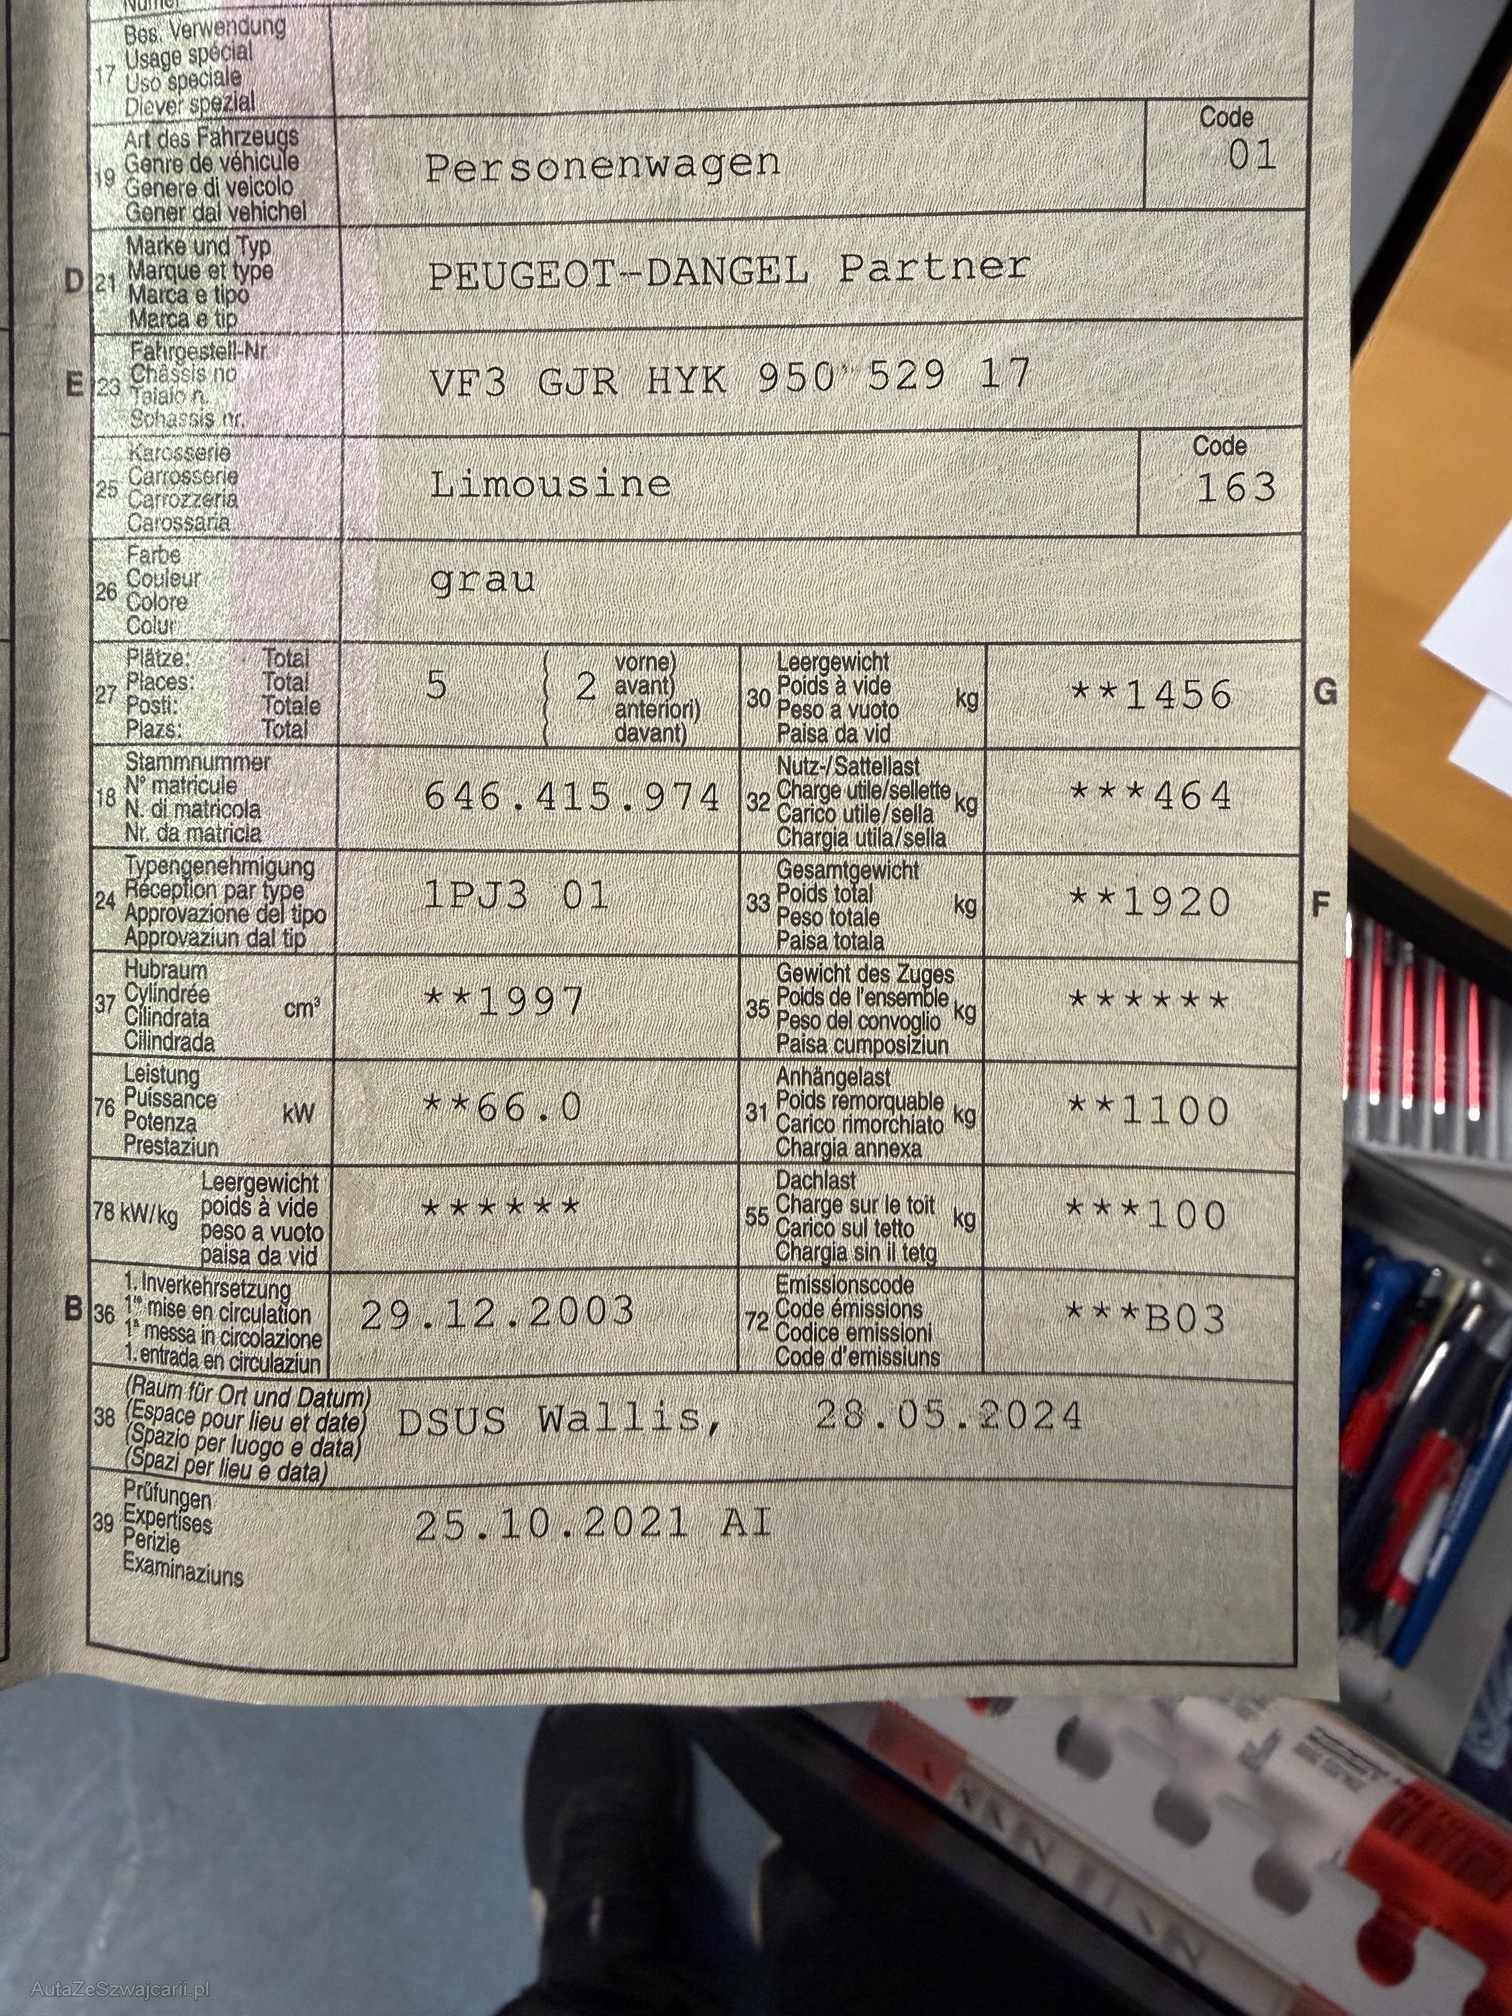 17 Bes. Verwendung
Usage spécial
Uso speciale
Diever spezial
19 Art des Fahrzeugs
Genre de véhicule
Genere di veicolo
Gener dal vehichel
Personenwagen
Code
01
D 21 Marke und Typ
Marque et type
Marca e tipo
Marca e tip
PEUGEOT-DANGEL Partner
E 23 Fahrgestell-Nr.
Châssis no
Telaio n.
Schassis nr.
VF3 GJR HYK 950 529 17
25 Karosserie
Carrosserie
Carrozzeria
Carossaria
Limousine
Code
163
26 Farbe
Couleur
Colore
Colur
grau
27 Plätze: Total
Places: Total
Posti: Totale
Plazs: Total
5 2 vorne)
avant)
anteriori)
davant)
30 Leergewicht
Poids à vide
Peso a vuoto
Paisa da vid
kg
**1456
G
18 Stammnummer
N° matricule
N. di matricola
Nr. da matricla
646.415.974
32 Nutz-/Sattellast
Charge utile/sellette
Carico utile/sella
Chargia utila/sella
kg
***464
24 Typengenehmigung
Réception par type
Approvazione del tipo
Approvaziun dal tip
1PJ3 01
33 Gesamtgewicht
Poids total
Peso totale
Paisa totala
kg
**1920
F
37 Hubraum
Cylindrée
Cilindrata
Cilindrada
cm³
**1997
35 Gewicht des Zuges
Poids de l'ensemble
Peso del convoglio
Paisa cumposiziun
kg
******
76 Leistung
Puissance
Potenza
Prestaziun
kW
**66.0
31 Anhängelast
Poids remorquable
Carico rimorchiato
Chargia annexa
kg
**1100
78 kW/kg Leergewicht
poids à vide
peso a vuoto
paisa da vid
******
55 Dachlast
Charge sur le toit
Carico sul tetto
Chargia sin il tetg
kg
***100
B 36 1. Inverkehrsetzung
1re mise en circulation
1a messa in circolazione
1. entrada en circulaziun
29.12.2003
72 Emissionscode
Code émissions
Codice emissioni
Code d'emissiuns
***B03
38 (Raum für Ort und Datum)
(Espace pour lieu et date)
(Spazio per luogo e data)
(Spazi per lieu e data)
DSUS Wallis, 28.05.2024
39 Prüfungen
Expertises
Perizie
Examinaziuns
25.10.2021 AI
AutaZeSzwajcarii.pl